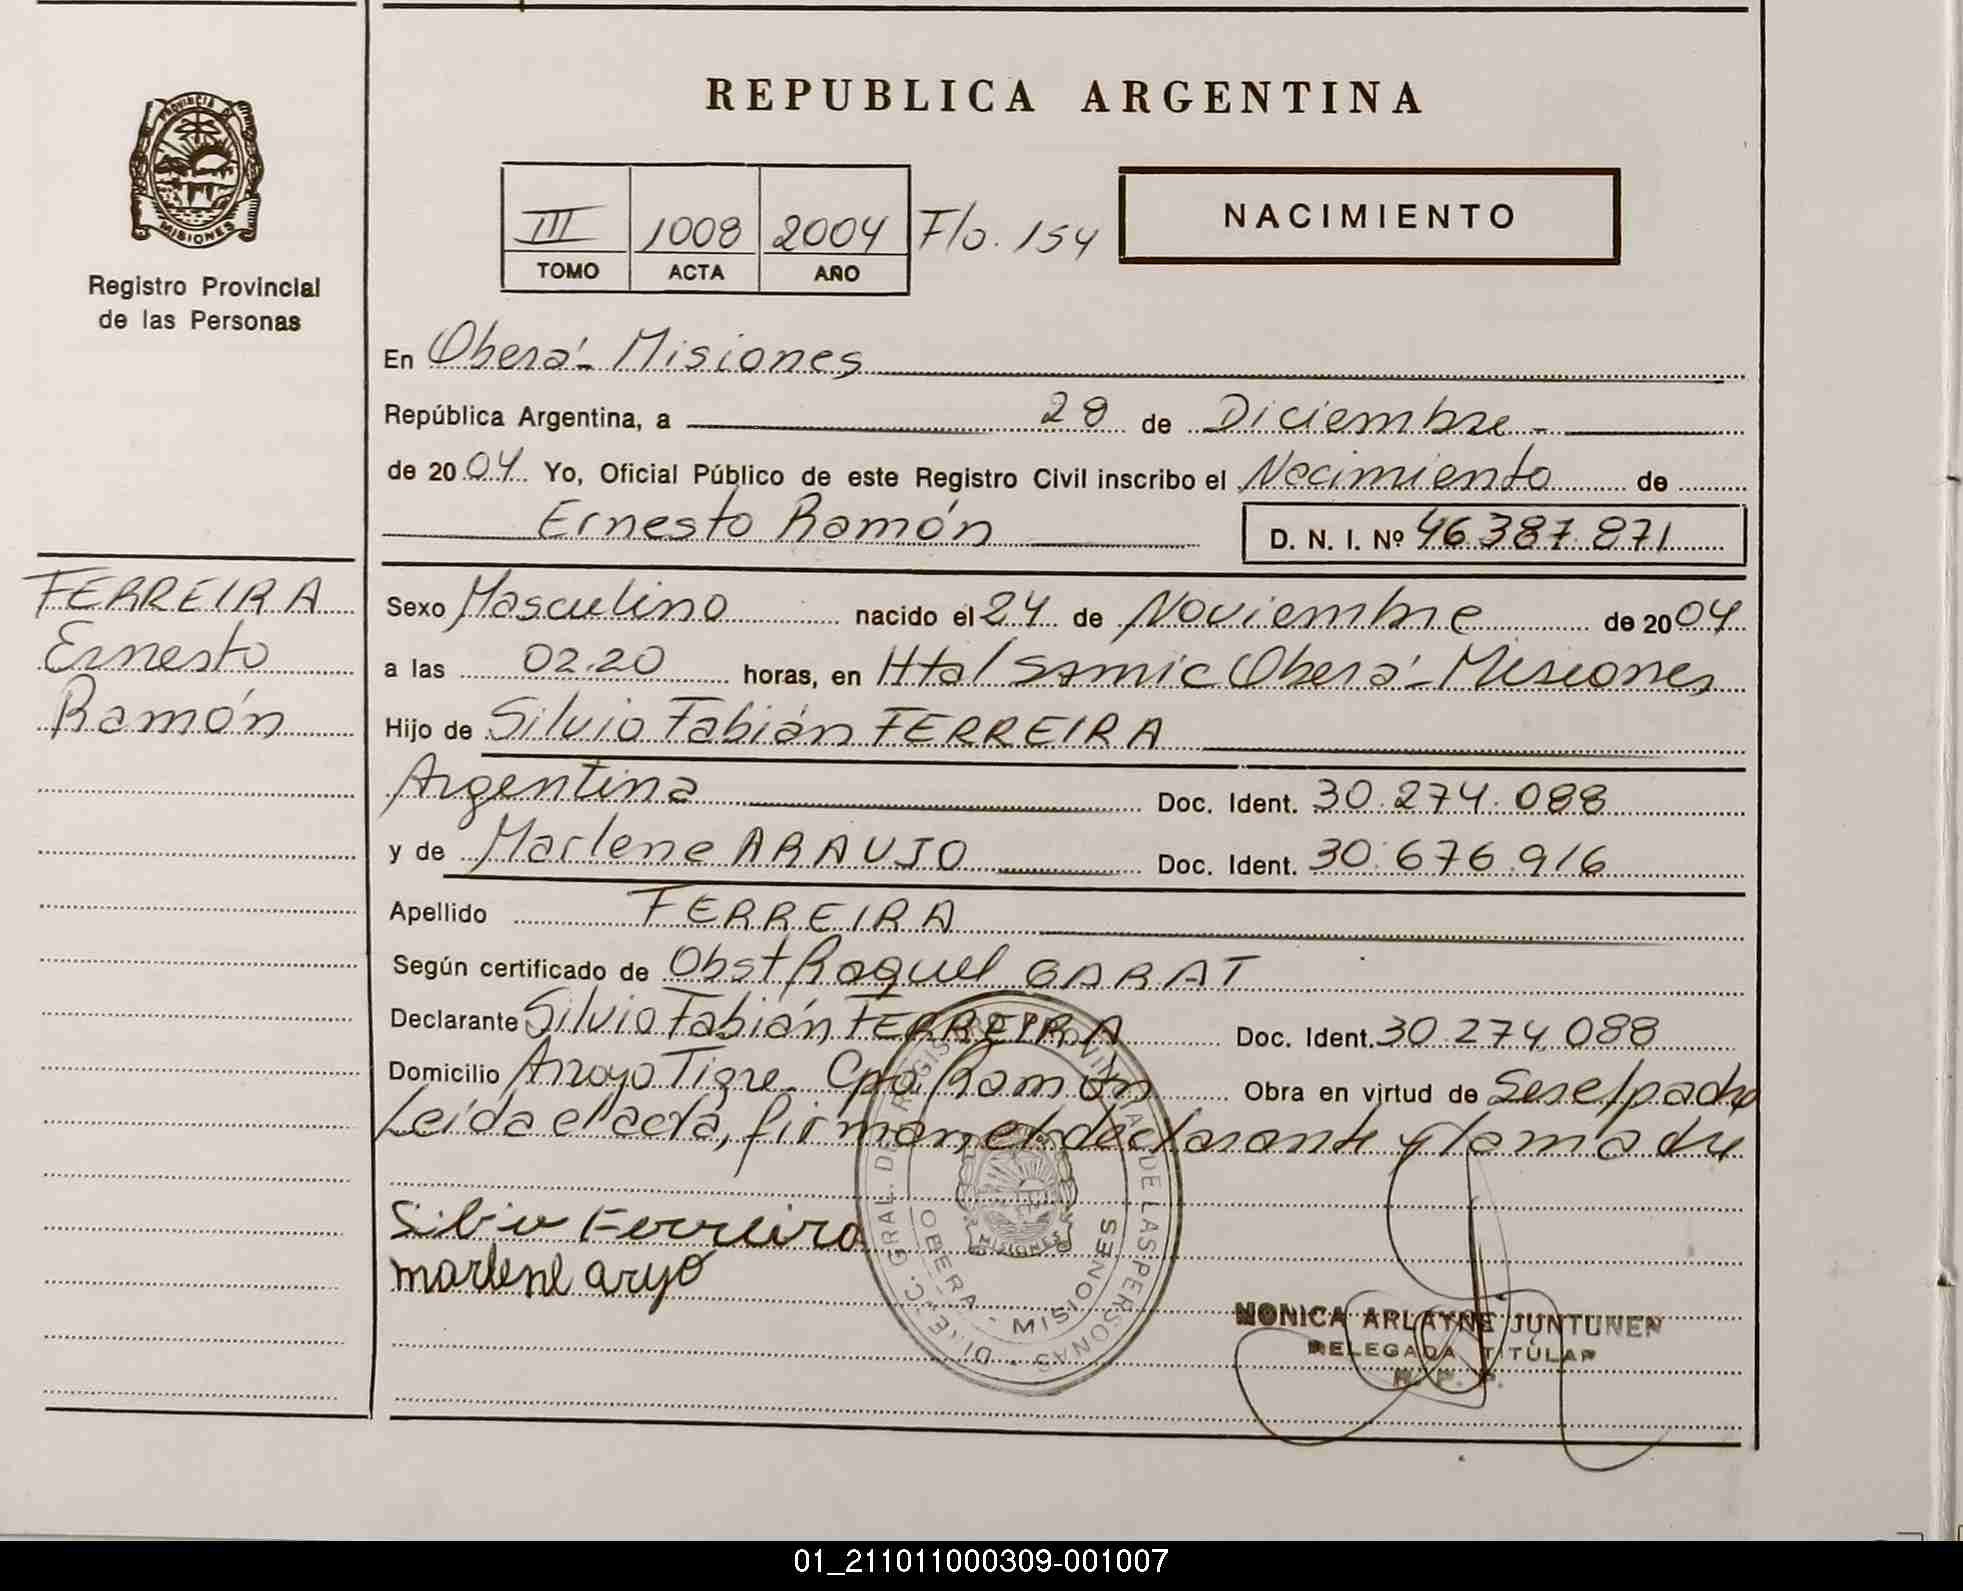 REPUBLICA ARGENTINA
PROVINCIA DE
MISIONES
Registro Provincial
de las Personas
III 1008 2004 F/o. 154
TOMO ACTA AÑO
NACIMIENTO
En Oberá - Misiones
República Argentina, a 28 de Diciembre -
de 2004 Yo, Oficial Público de este Registro Civil inscribo el Nacimiento de
Ernesto Ramón D. N. I. Nº 46.387.871
FERREIRA
Ernesto
Ramón
Sexo Masculino nacido el 24 de Noviembre de 2004
a las 02.20 horas, en Htal Samic Oberá - Misiones
Hijo de Silvio Fabián FERREIRA
Argentina Doc. Ident. 30.274.088
y de Marlene ARAUJO Doc. Ident. 30.676.916
Apellido FERREIRA
Según certificado de Obst Raquel GARAT
Declarante Silvio Fabián FERREIRA Doc. Ident. 30.274.088
Domicilio Arroyo Tigre - Cpo. Ramón Obra en virtud de Ser el padre
Leída el acta, firman el declarante y la madre
Silvio Ferreira
marlene aryo
DIREC. GRAL. DE REGISTRO PROVINCIAL DE LAS PERSONAS
OBERA - MISIONES
MISIONES
MONICA ARLAYNE JUNTUNEN
DELEGADA TITULAR
R. P. P.
01_211011000309-001007